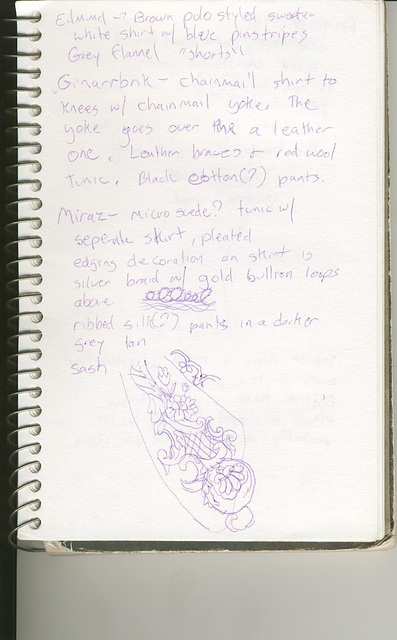 Edmund -> Brown polo styled sweater
white shirt w/ blue pinstripes
Grey flannel "shorts"
Ginarrbrik - chainmail shirt to
knees w/ chainmail yoke. The
yoke goes over a leather
one. Leather braces & red wool
tunic. Black cotton(?) pants.
Miraz - microsuede? tunic w/
seperate skirt, pleated
edging decoration on skirt is
silver braid w/ gold bullion loops
above
ribbed silk(?) pants in a darker
grey tan
sash